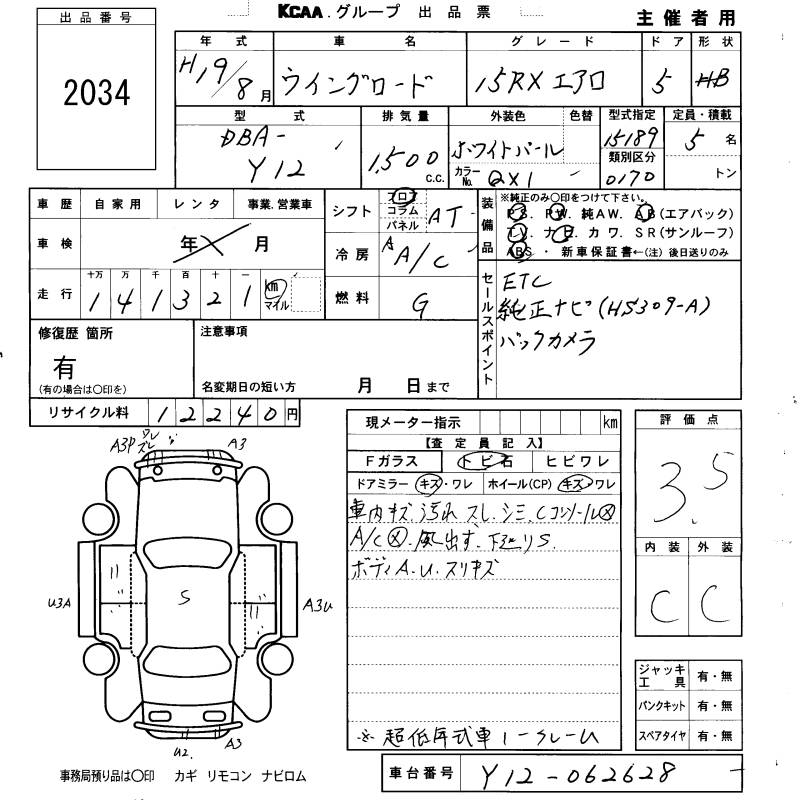 KCAA.グループ 出品票
主催者用
出品番号
2034
年式 車名 グレード ドア 形状
H19/8月 ウイングロード 15RX エアロ 5 HB
型式 排気量 外装色 色替 型式指定 定員・積載
DBA-Y12 1,500 c.c. ホワイトパール 15189 5名
カラーNo. QX1 類別区分 0170 トン
車歴 自家用 レンタ 事業、営業車
シフト フロア コラム パネル AT
装備品 ※純正のみ〇印をつけて下さい。
PS. PW. 純AW. AB(エアバック)
TV. ナビ. カワ. SR(サンルーフ)
ABS・新車保証書←(注)後日送りのみ
車検 年 月
冷房 A A/C
走行 十万 万 千 百 十 一
1 4 1 3 2 1 km マイル
燃料 G
セールスポイント
ETC
純正ナビ(HS309-A)
バックカメラ
修復歴 箇所
有
(有の場合は〇印を)
注意事項
名変期日の短い方 月 日まで
リサイクル料 12240円
現メーター指示 km
【査定員記入】
Fガラス トビ石 ヒビワレ
ドアミラー キズ・ワレ ホイール(CP) キズ・ワレ
車内キズ.汚れ スレ.シミ.Cコンソール㊇
A/C㊇.風出す.下廻りS.
ボディA.U.スリキズ
※ 超低年式車ノークレーム
評価点
3.5
内装 外装
C C
ジャッキ工具 有・無
パンクキット 有・無
スペアタイヤ 有・無
A3P ワレ ズレ A3
U3A S A3U
U2. A3
事務局預り品は〇印 カギ リモコン ナビロム
車台番号 Y12-062628